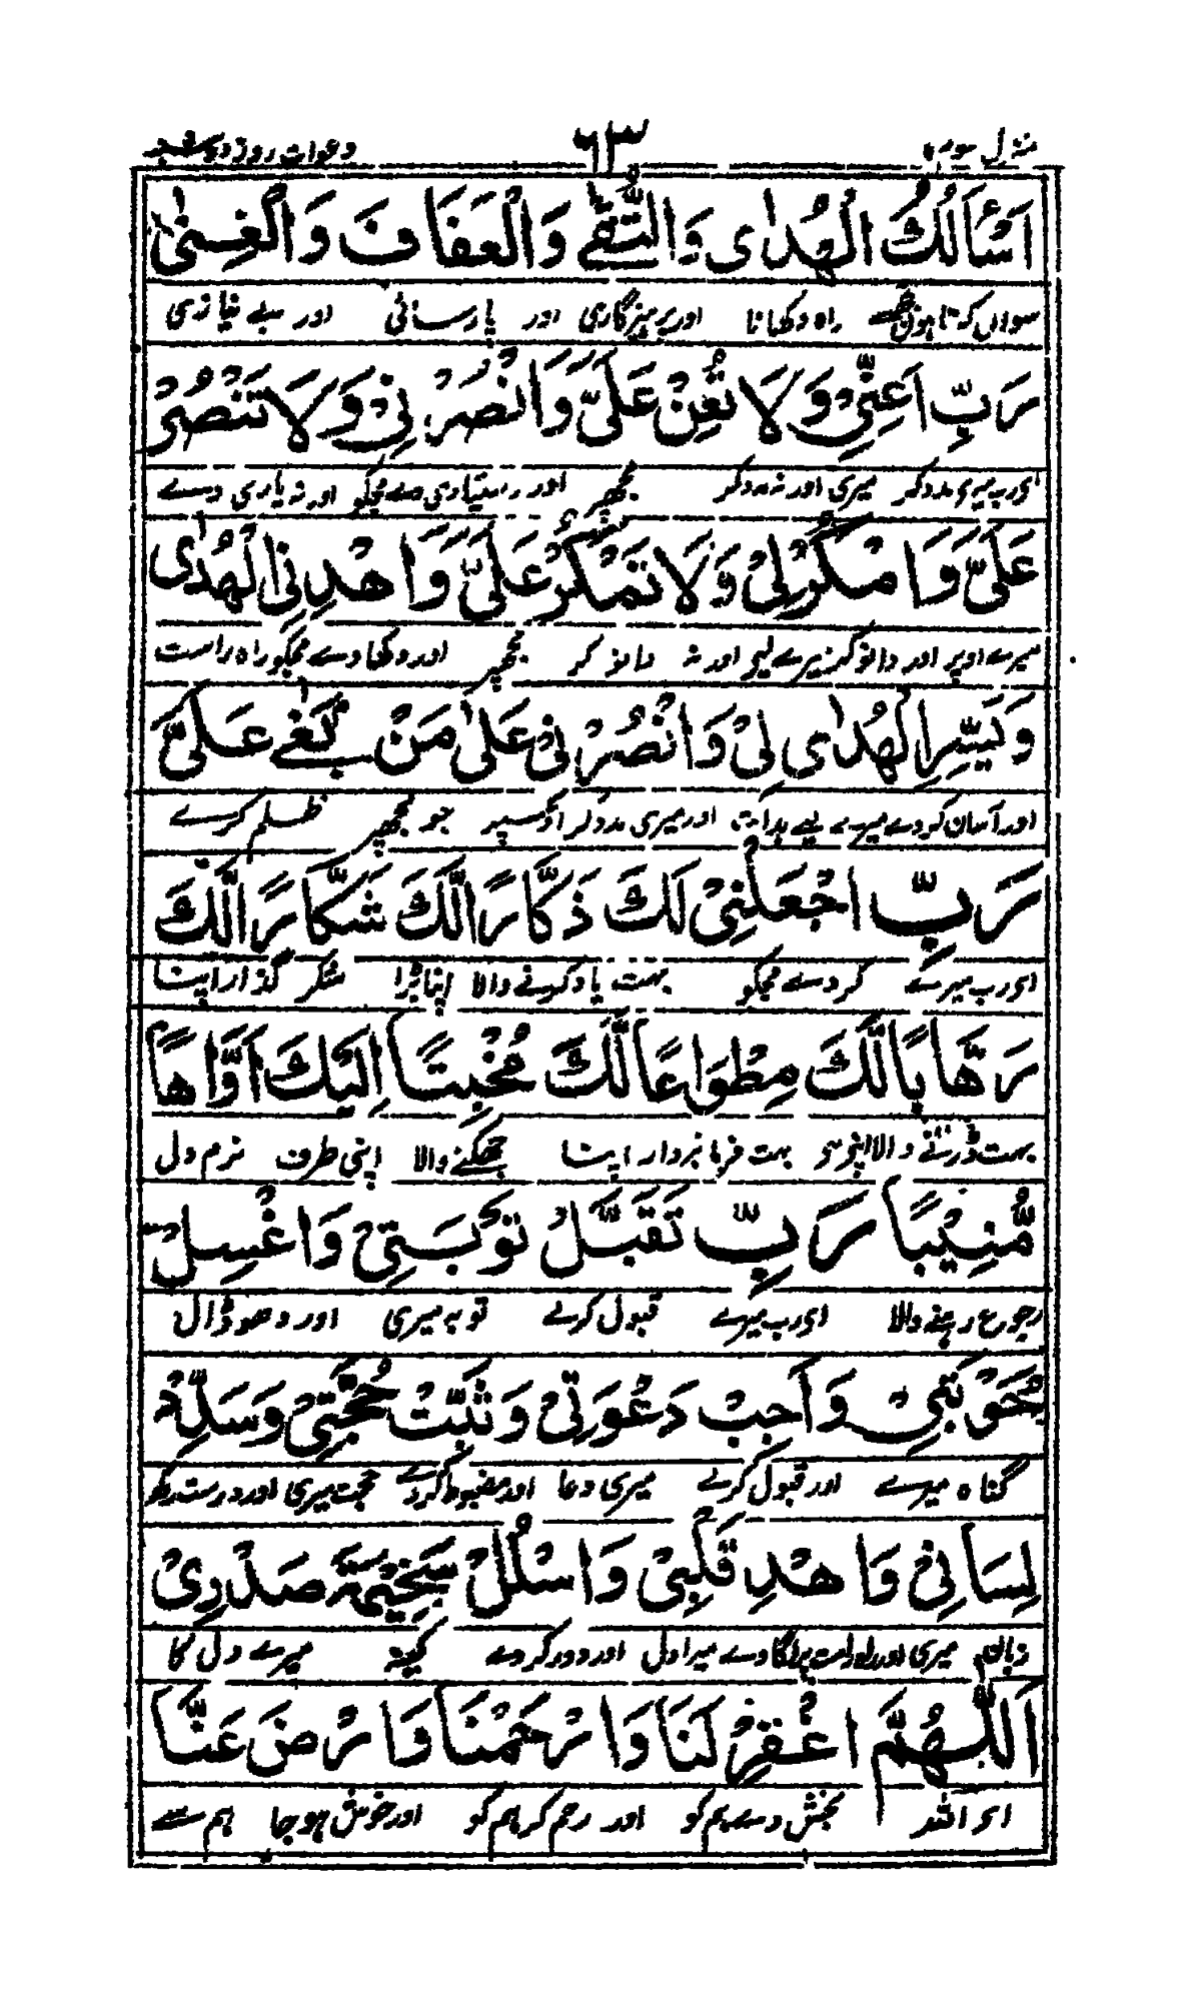 منزل سوم ٦٣ دعوات روز دوشنبه
اَسْأَلُكَ الْهُدٰى وَالتُّقٰى وَالْعَفَافَ وَالْغِنٰى
سوال کرتا ہوں تجھسے راہ دکھانا اور پرہیزگاری اور پارسائی اور بے نیازی
رَبِّ اَعِنِّىْ وَلَا تُعِنْ عَلَىَّ وَانْصُرْنِىْ وَلَا تَنْصُرْ
اے رب میرے مدد کر میری اور نہ مدد کر مجھپر اور یاری دے مجکو اور نہ یاری دے
عَلَىَّ وَامْكُرْ لِىْ وَلَا تَمْكُرْ عَلَىَّ وَاهْدِنِى الْهُدٰى
میرے اوپر اور داؤ کر میرے لیے اور نہ داؤ کر مجھپر اور دکھا دے مجکو راہ راست
وَيَسِّرِ الْهُدٰى لِىْ وَانْصُرْنِىْ عَلٰى مَنْ بَغٰى عَلَىَّ
اور آسان کر دے میرے لیے ہدایت اور میری مدد کر اوسپر جو مجھپر ظلم کرے
رَبِّ اجْعَلْنِىْ لَكَ ذَكَّارًا لَّكَ شَكَّارًا لَّكَ
اے رب میرے کر دے مجکو بہت یاد کرنے والا اپنا بڑا شکر گذار اپنا
رَهَّابًا لَّكَ مِطْوَاعًا لَّكَ مُخْبِتًا اِلَيْكَ اَوَّاهًا
بہت ڈرنے والا اپنے سے بہت فرمانبردار اپنا جھکنے والا اپنی طرف نرم دل
مُّنِيْبًا رَبِّ تَقَبَّلْ تَوْبَتِىْ وَاغْسِلْ
رجوع رہنے والا اے رب میرے قبول کرلے توبہ میری اور دھو ڈال
حَوْبَتِىْ وَاَجِبْ دَعْوَتِىْ وَثَبِّتْ حُجَّتِىْ وَسَدِّدْ
گناہ میرے اور قبول کرلے میری دعا اور مضبوط کردے حجت میری اور درست رکھ
لِسَانِىْ وَاهْدِ قَلْبِىْ وَاسْلُلْ سَخِيْمَةَ صَدْرِىْ
زبان میری اور راہ راست پر لگا دے میرا دل اور دور کر دے کینہ میرے دل کا
اَللّٰهُمَّ اغْفِرْ لَنَا وَارْحَمْنَا وَارْضَ عَنَّا
اے اللہ بخش دے ہم کو اور رحم کر ہم کو اور خوش ہو جا ہم سے